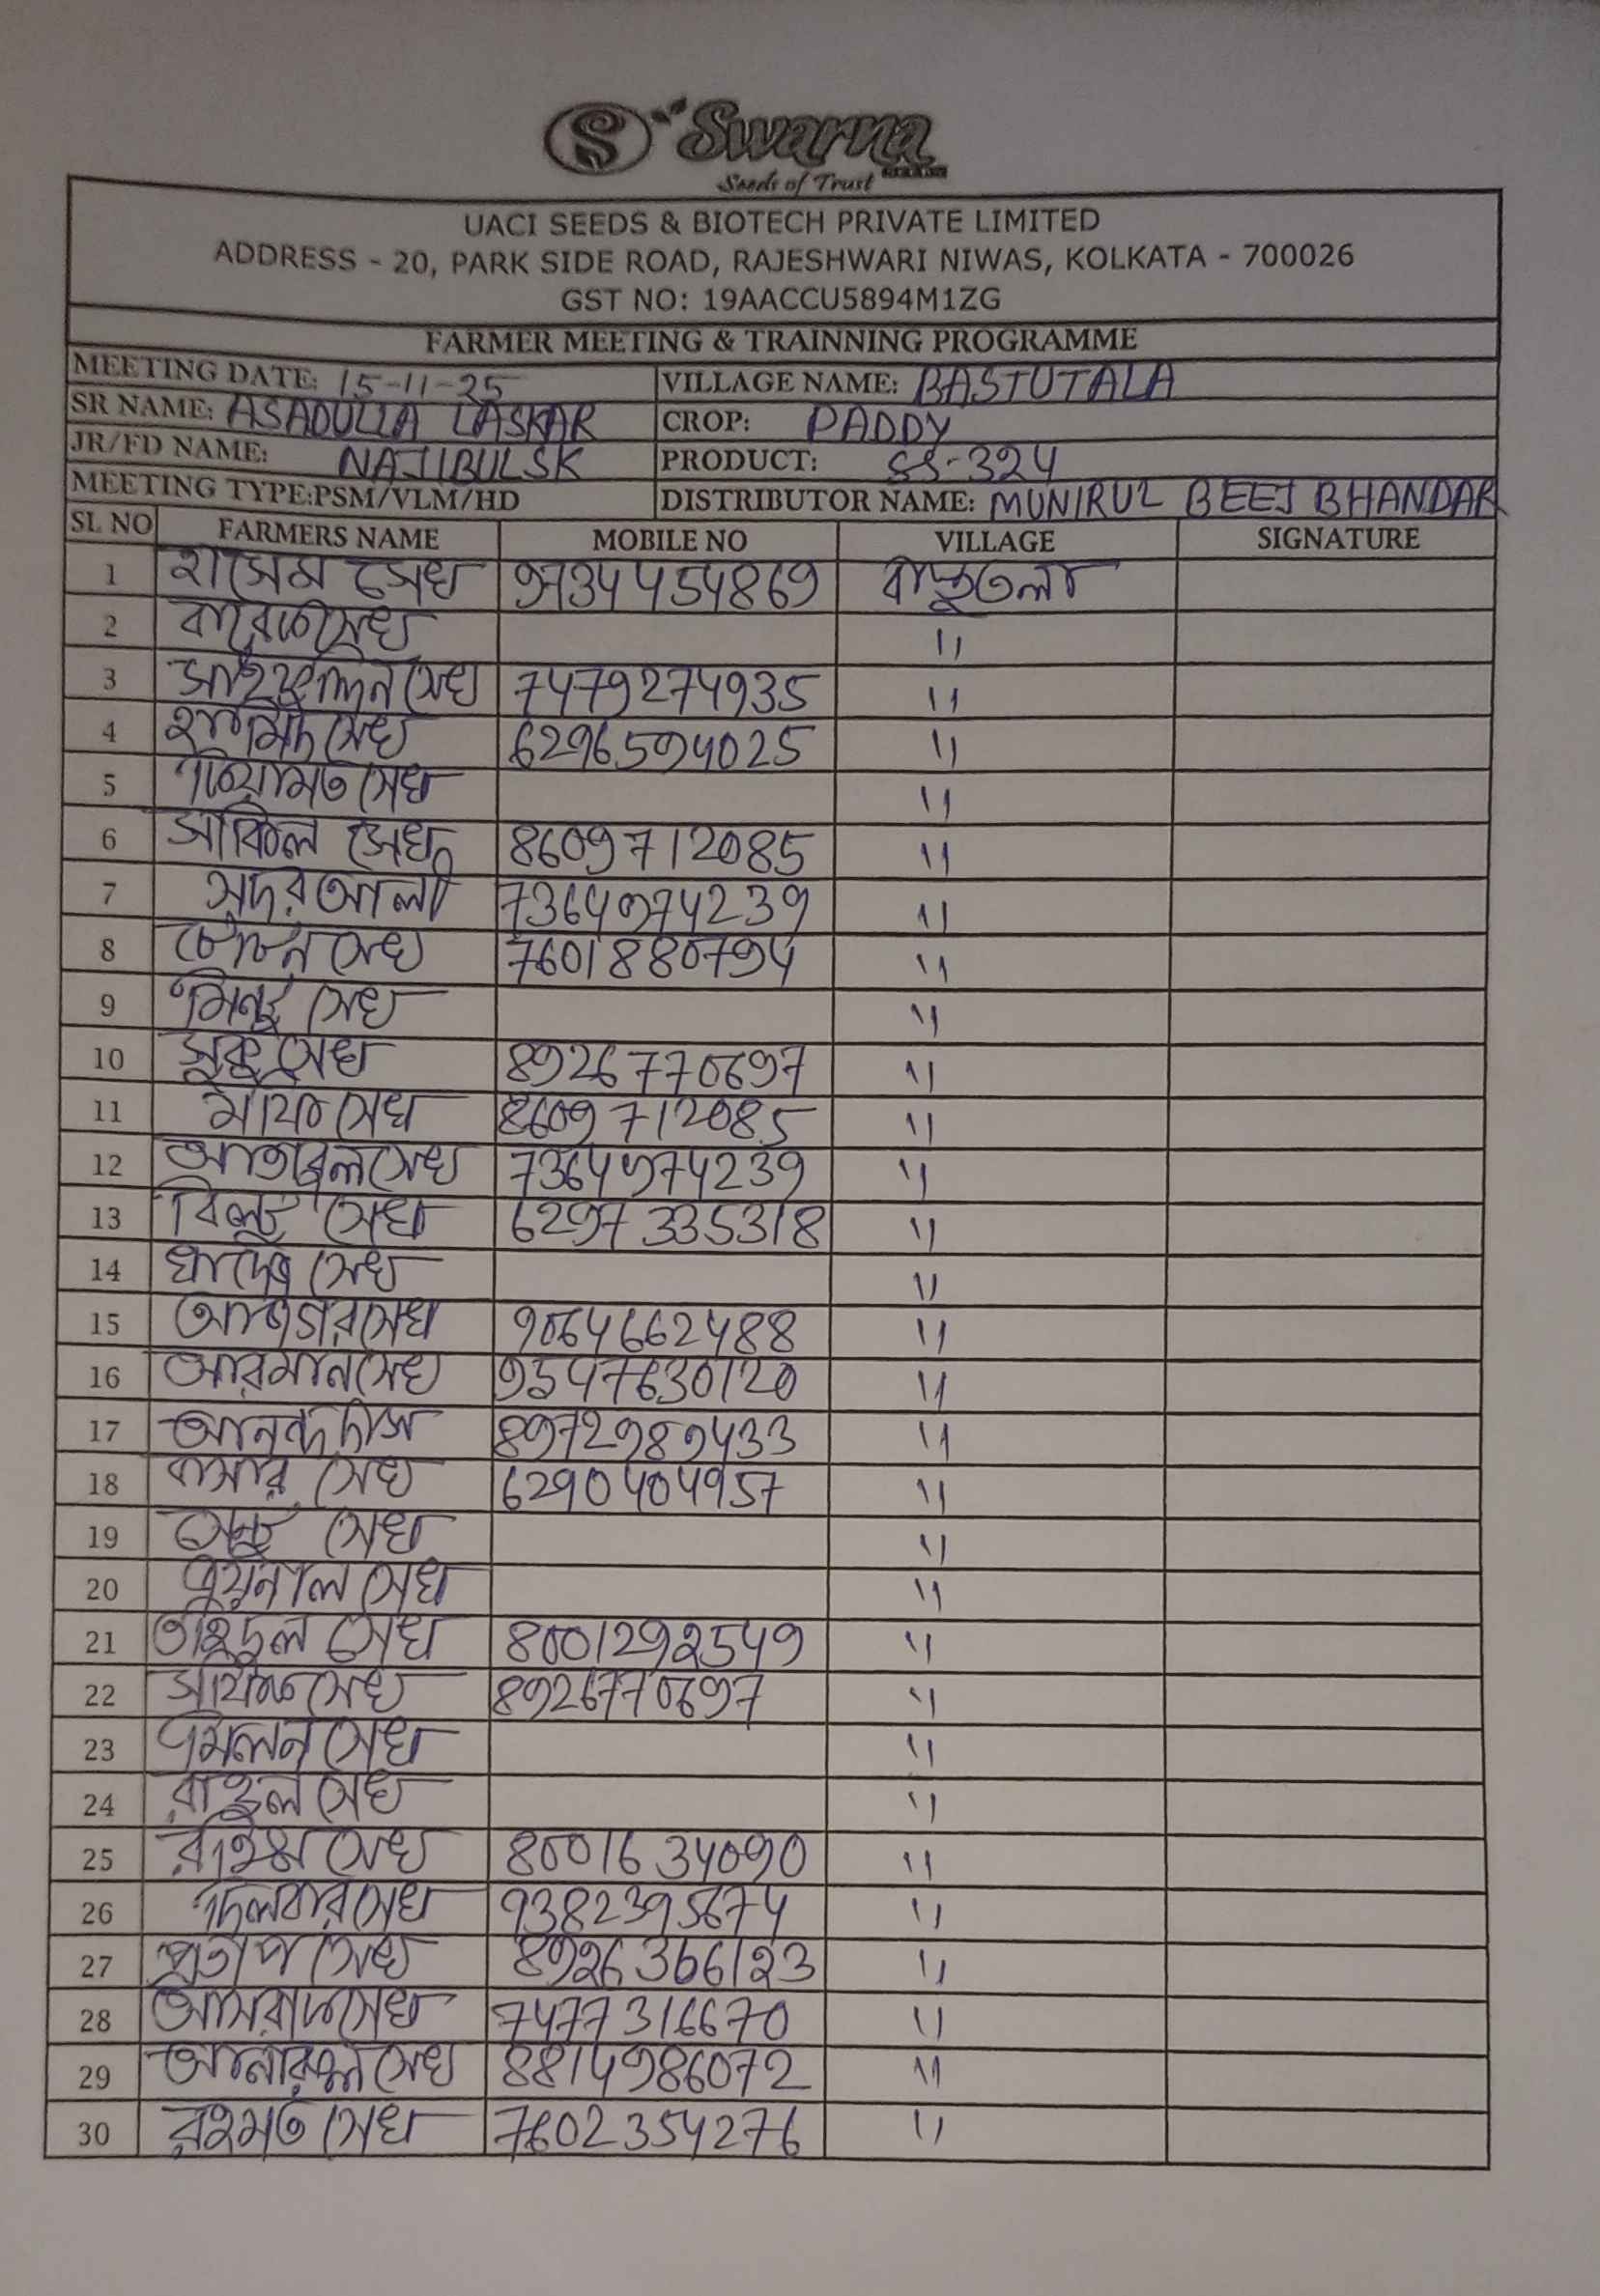 S Swarna
Seeds of Trust
UACI SEEDS & BIOTECH PRIVATE LIMITED
ADDRESS - 20, PARK SIDE ROAD, RAJESHWARI NIWAS, KOLKATA - 700026
GST NO: 19AACCU5894M1ZG
FARMER MEETING & TRAINNING PROGRAMME
MEETING DATE: 15-11-25 VILLAGE NAME: BASTUTALA
SR NAME: ASADULLA LASKAR CROP: PADDY
JR/FD NAME: NAJIBUL SK PRODUCT: SS-324
MEETING TYPE:PSM/VLM/HD DISTRIBUTOR NAME: MUNIRUL BEEJ BHANDAR
SL NO FARMERS NAME MOBILE NO VILLAGE SIGNATURE
1 হাসেম সেখ 9734454869 বাস্তুতলা
2 সেখ 11
3 সেখ 7479274935 11
4 হামিদ সেখ 6296594025 11
5 নিয়ামত সেখ 11
6 সাকিল সেখ 8609712085 11
7 সদর আলী 7364974239 11
8 সেখ 7601880794 11
9 মিন্টু সেখ 11
10 সুকু সেখ 8926770697 11
11 সেখ 8609712085 11
12 সেখ 7364974239 11
13 বিল্টু সেখ 6297335318 11
14 সেখ 11
15 আজগর সেখ 9064662488 11
16 আরমান সেখ 9547630120 11
17 আনন্দ দাস 8972989433 11
18 বাসার সেখ 6290404957 11
19 সেন্টু সেখ 11
20 সেখ 11
21 তাহিদুল সেখ 8001292549 11
22 সেখ 8926770697 11
23 মিলন সেখ 11
24 রাহুল সেখ 11
25 রহিম সেখ 8001634090 11
26 দিলবার সেখ 9382395674 11
27 প্রতাপ সেখ 8926366123 11
28 আসরাফ সেখ 7477316670 11
29 আনারুল সেখ 8814986072 11
30 রহমত সেখ 7602354276 11